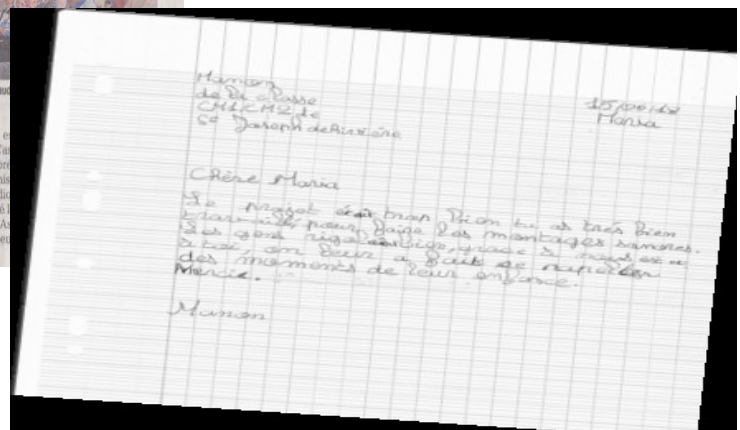 Manon
de la classe
CM1/CM2 de
St Joseph de Rivière
Maria
Chère Maria
Le projet était trop bien tu as très bien
travaillé pour faire les montages sonores.
Les gens grace à nous et
à toi on leur a fait se rapeller
des moments de leur enfance.
Merci.
Manon